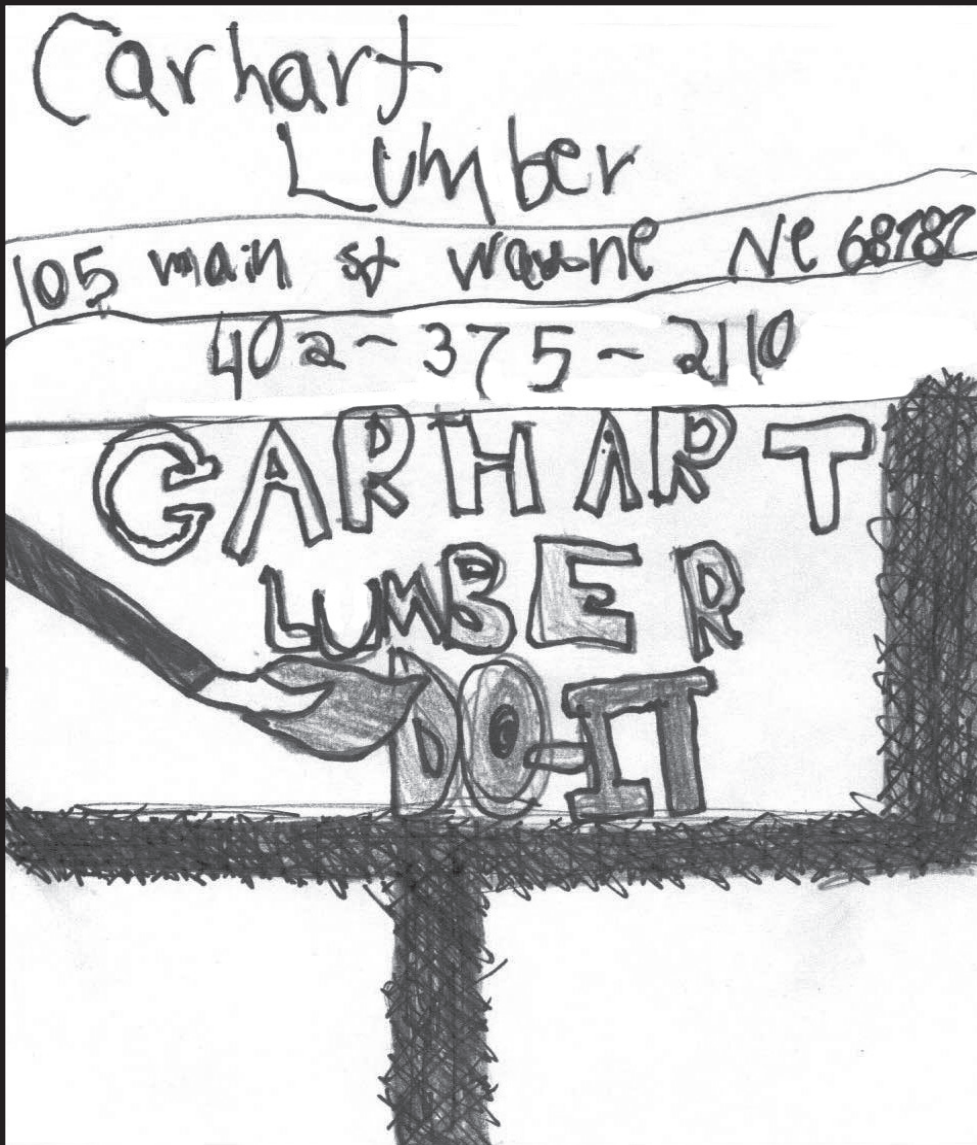 Carhart
Lumber
105 main st wayne Ne 68787
402-375-2110
CARHART
LUMBER
DO-IT